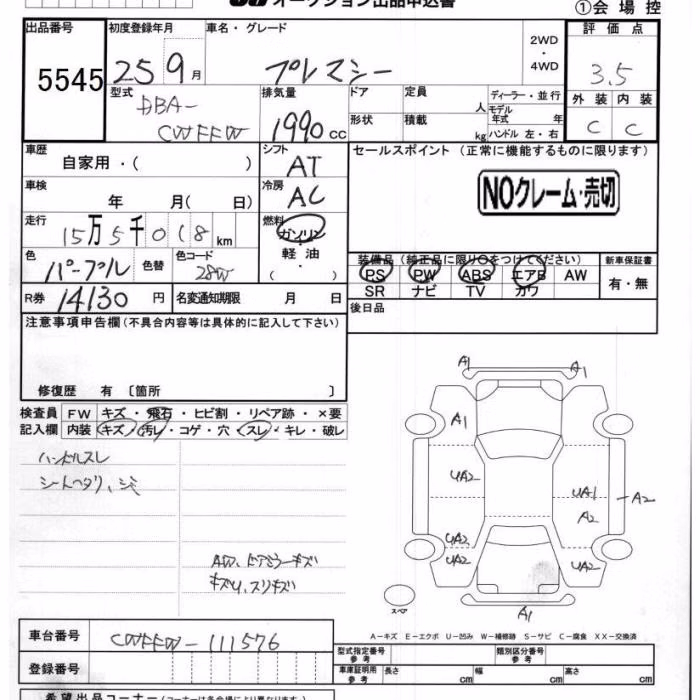 オークション出品申込書
①会場控
出品番号
5545
初度登録年月
25 9月
車名・グレード
プレマシー
2WD
・
4WD
評価点
3.5
型式
DBA-
CWFFW
排気量
1990 cc
ドア
形状
定員
人
積載
kg
ディーラー・並行
モデル年式 年
ハンドル 左・右
外装
内装
C
C
車歴
自家用・( )
シフト
AT
セールスポイント (正常に機能するものに限ります)
NOクレーム・売切
車検
年 月( 日)
冷房
AC
走行
15万5千018km
燃料
ガソリン
軽油
・
( )
色
パープル
色替
色コード
28W
装備品 (純正品に限り○をつけてください)
PS PW ABS エアB AW
SR ナビ TV カワ
新車保証書
有・無
R券
14130円
名変通知期限 月 日
後日品
注意事項申告欄(不具合内容等は具体的に記入して下さい)
修復歴 有 〔箇所 〕
検査員
記入欄
FW キズ・飛石・ヒビ割・リペア跡・×要
内装 キズ・汚レ・コゲ・穴・スレ・キレ・破レ
ハンドルスレ
シートヘタリ、シミ
AW、ドアミラーキズ
キズU、スリキズ
A1
A1
A1
UA2
UA1
A2
A2
UA2
UA2
UA2
A1
スペア
A-キズ E-エクボ U-凹み W-補修跡 S-サビ C-腐食 XX-交換済
車台番号
CWFFW-111576
登録番号
型式指定番号
参考
類別区分番号
参考
車庫証明用
参考
長さ cm
幅 cm
高さ cm
希望出品コーナー(コーナーは各会場により異なります)